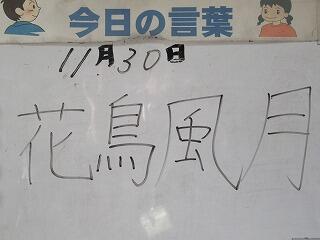 今日の言葉
11月30日
花鳥風月